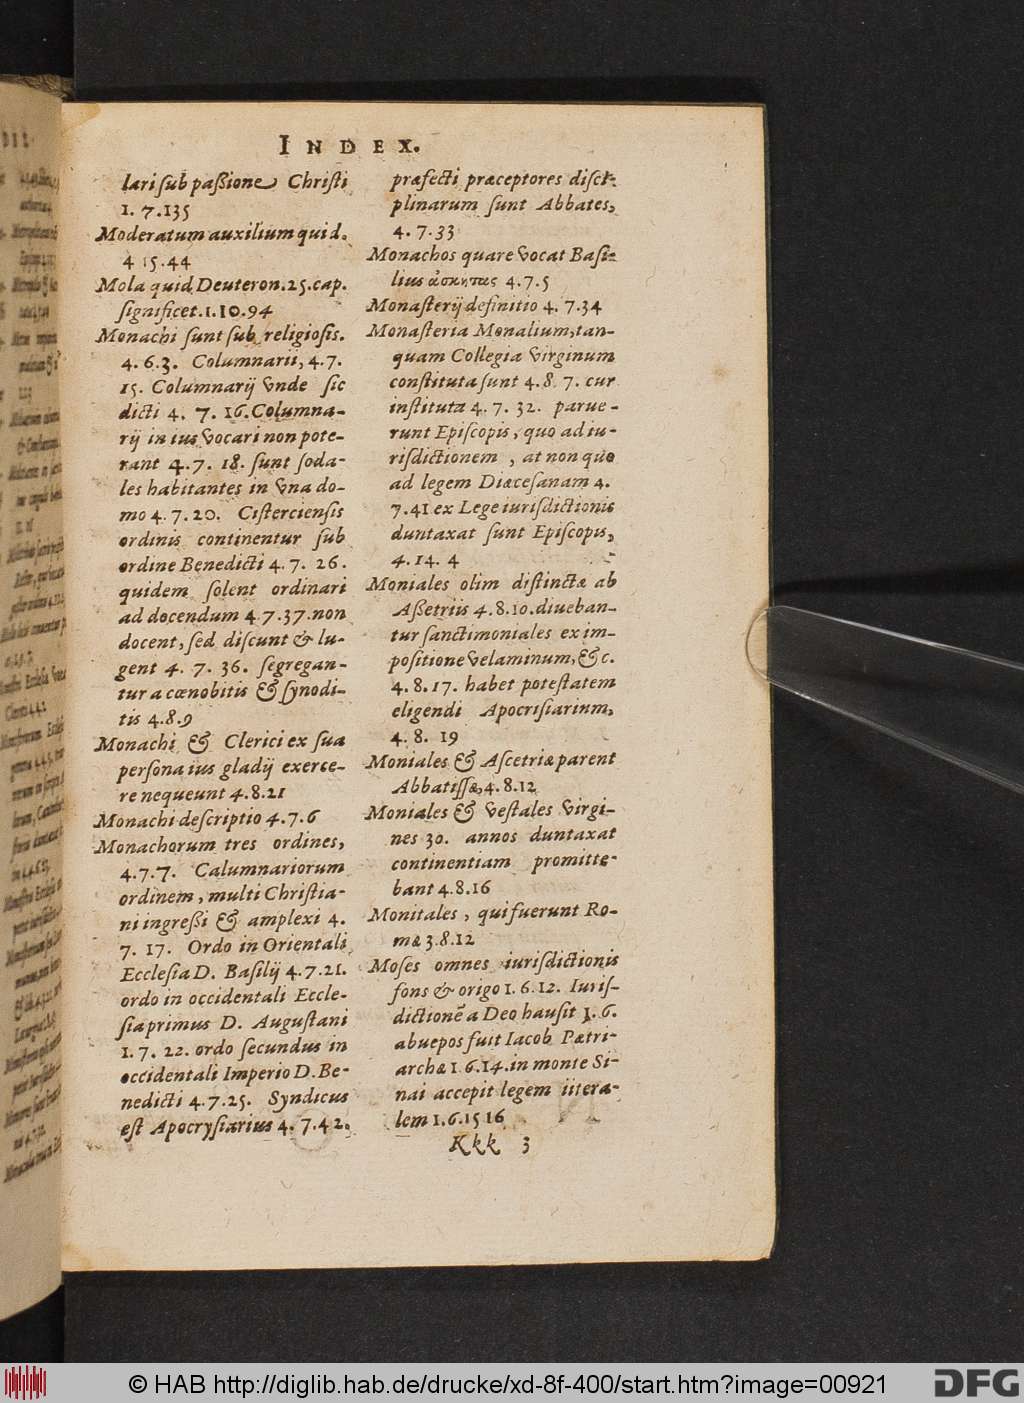 INDEX.
lari sub paßione Christi
1. 7.135
Moderatum auxilium quid.
4 15.44
Mola quid Deuteron.25.cap.
significet.1.10.94
Monachi sunt sub religiosis.
4.6.3. Columnarii, 4.7.
15. Columnarij vnde sic
dicti 4. 7. 16. Columna-
rij in ius vocari non pote-
rant 4.7. 18. sunt soda-
les habitantes in vna do-
mo 4.7.20. Cisterciensis
ordinis continentur sub
ordine Benedicti 4.7. 26.
quidem solent ordinari
ad docendum 4.7.37.non
docent, sed discunt & lu-
gent 4. 7. 36. segregan-
tur a cœnobitis & synodi-
tis 4.8.9
Monachi & Clerici ex sua
persona ius gladij exerce-
re nequeunt 4.8.21
Monachi descriptio 4.7.6
Monachorum tres ordines,
4.7.7. Calumnariorum
ordinem, multi Christia-
ni ingreßi & amplexi 4.
7. 17. Ordo in Orientali
Ecclesia D. Basilij 4.7.21.
ordo in occidentali Eccle-
sia primus D. Augustani
1. 7. 22. ordo secundus in
occidentali Imperio D. Be-
nedicti 4.7.25. Syndicus
est Apocrysiarius 4.7.42.
præfecti præceptores disci-
plinarum sunt Abbates,
4.7.33
Monachos quare vocat Basi-
lius ἀσκητας 4.7.5
Monasterij definitio 4.7.34
Monasteria Monalium, tan-
quam Collegia virginum
constituta sunt 4.8.7. cur
instituta 4.7.32. parue-
runt Episcopis, quo ad iu-
risdictionem, at non quo
ad legem Diœcesanam 4.
7.41 ex Lege iurisdictionis
duntaxat sunt Episcopis,
4.14.4
Moniales olim distinctæ ab
Aßetriis 4.8.10.diueban-
tur sanctimoniales ex im-
positione velaminum, &c.
4.8.17. habet potestatem
eligendi Apocrisiarium,
4.8. 19
Moniales & Ascetriæ parent
Abbatissæ, 4.8.12
Moniales & vestales virgi-
nes 30. annos duntaxat
continentiam promitte-
bant 4.8.16
Monitales, qui fuerunt Ro-
mæ 3.8.12
Moses omnes iurisdictionis
fons & origo 1.6.12. Iuris-
dictionẽ a Deo hausit 1.6.
abuepos fuit Iacob Patri-
archæ 1.6.14.in monte Si-
nai accepit legem iitera-
lem 1.6.15 16
Kkk 3
© HAB http://diglib.hab.de/drucke/xd-8f-400/start.htm?image=00921
DFG